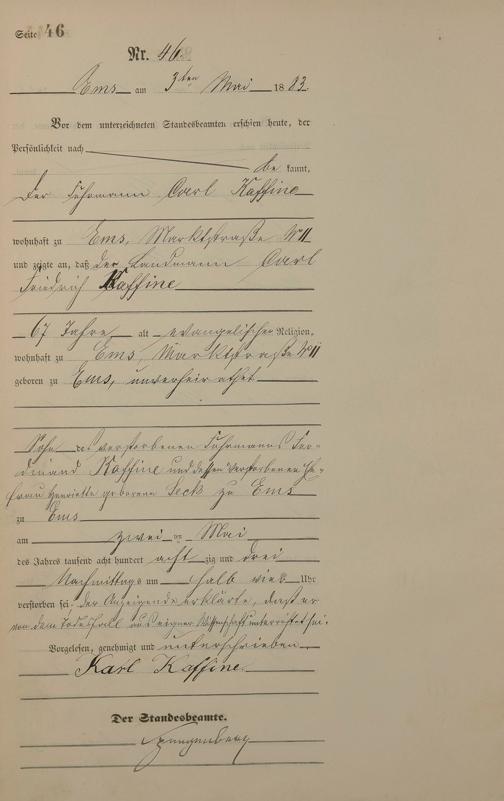 Seite 46
Nr. 46.
Ems am 3ten Mai 1883.
Vor dem unterzeichneten Standesbeamten erschien heute, der
Persönlichkeit nach
be kannt,
der Fuhrmann Carl Kaffine
wohnhaft zu Ems, Marktstraße No 11
und zeigte an, daß der Landmann Carl
Friedrich Kaffine
67 Jahre alt evangelischer Religion,
wohnhaft zu Ems, Marktstraße No 11
geboren zu Ems, unverheirathet
Sohn des verstorbenen Fuhrmanns Fer-
dinand Kaffine und dessen verstorbenen Ehe-
frau Henriette geborene Seck zu Ems
zu Ems
am zwei ten Mai
des Jahres tausend acht hundert acht zig und drei
Nachmittags um halb vier Uhr
verstorben sei; der Anzeigende erklärte, daß er
von dem Todesfall aus eigner Wissenschaft unterrichtet sei.
Vorgelesen, genehmigt und unterschrieben
Karl Kaffine
Der Standesbeamte.